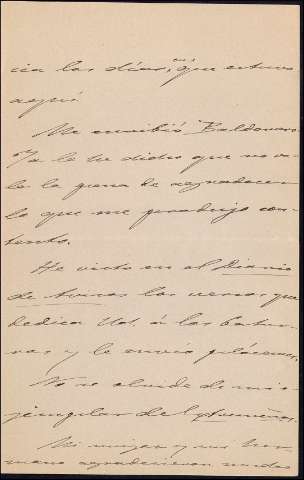 cia los días, que estuvo
aquí.
Me escribió Baldomero
Ya le he dicho que no va-
le la pena de agradecer
lo que me produjo con-
tento.
He visto en el Diario
de Avisos los versos que
dedica Ud. á las
y le envío plácemes.
No se olvide de mi e-
jemplar del
Mi mujer y mi her-
mana agradecieron mucho